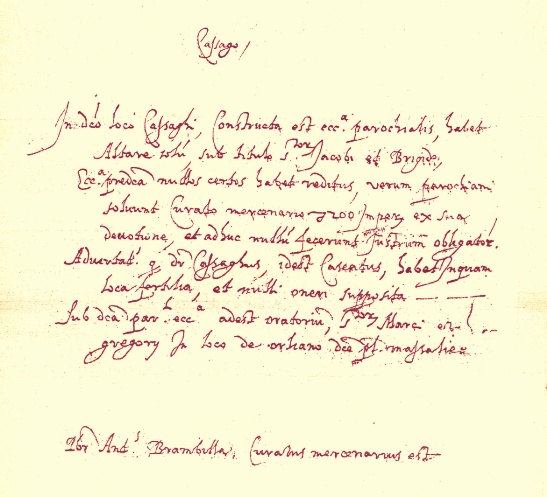 Cassago /
In dco loco Cassaghi, Constructa est ecc.a parochialis, habet
Altare solu sub titulo S.tor Jacobi et Brigide,
Ecc.a predca nullos certos habet reditus, verum parochiani
solvunt Curato mercenario 200 Imper. ex sua
devotione, et adhuc nullu fecerunt Instrum obligator.
Advertat q dr Cassaghus, idest Caseatus, habet Inquam
loca fertilia, et nulli oneri supposita — —
Sub dca par.li ecc.a adest oratoriu, S.tor Marci et
gregory In loco de orliano dce pl. massalie
Pbr Ant.s Brambilla, Curatus mercenarius est